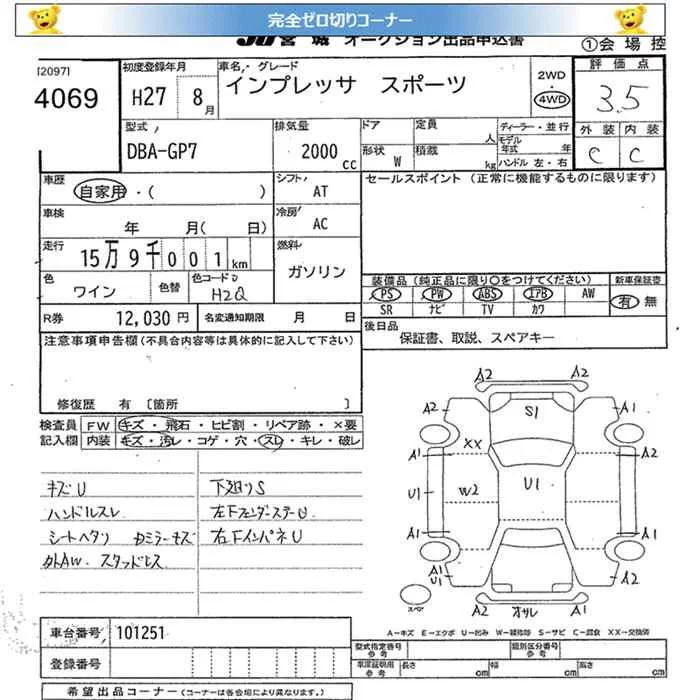 完全ゼロ切りコーナー
JU宮城 オークション出品申込書
①会場控
[2097]
4069
初度登録年月
H27 8月
車名・グレード
インプレッサ スポーツ
2WD
・
4WD
評価点
3.5
外装 内装
C C
型式
DBA-GP7
排気量
2000cc
ドア
形状 W
定員 人
積載 kg
ディーラー・並行
モデル年式 年
ハンドル 左・右
車歴
自家用・( )
シフト
AT
セールスポイント(正常に機能するものに限ります)
車検
年 月( 日)
冷房
AC
走行
15万9千001km
燃料
ガソリン
色
ワイン
色替
色コード
H2Q
装備品(純正品に限り○をつけてください)
新車保証書
PS PW ABS エアB AW
SR ナビ TV カワ
有 無
R券 12,030円
名変通知期限 月 日
後日品
保証書、取説、スペアキー
注意事項申告欄(不具合内容等は具体的に記入して下さい)
修復歴 有 〔箇所
検査員記入欄
FW キズ・飛石・ヒビ割・リペア跡・×要
内装 キズ・汚レ・コゲ・穴・スレ・キレ・破レ
キズU
下廻りS
ハンドルスレ
左下フェンダーステーU
シートヘタリ
右下インパネU
外AW. スタッドレス
A2 A2
A2 S1 A1
XX
A1 A2
U1 W2 U1 U1
A1 A1
A1
U1 A2
スペア
A2 オサレ A2
A-キズ E-エクボ U-凹み W-補修跡 S-サビ C-腐食 XX-交換済
車台番号 101251
登録番号
型式指定番号
参考
類別区分番号
参考
車庫証明用
参考
長さ cm 幅 cm 高さ cm
希望出品コーナー(コーナーは各会場により異なります。)